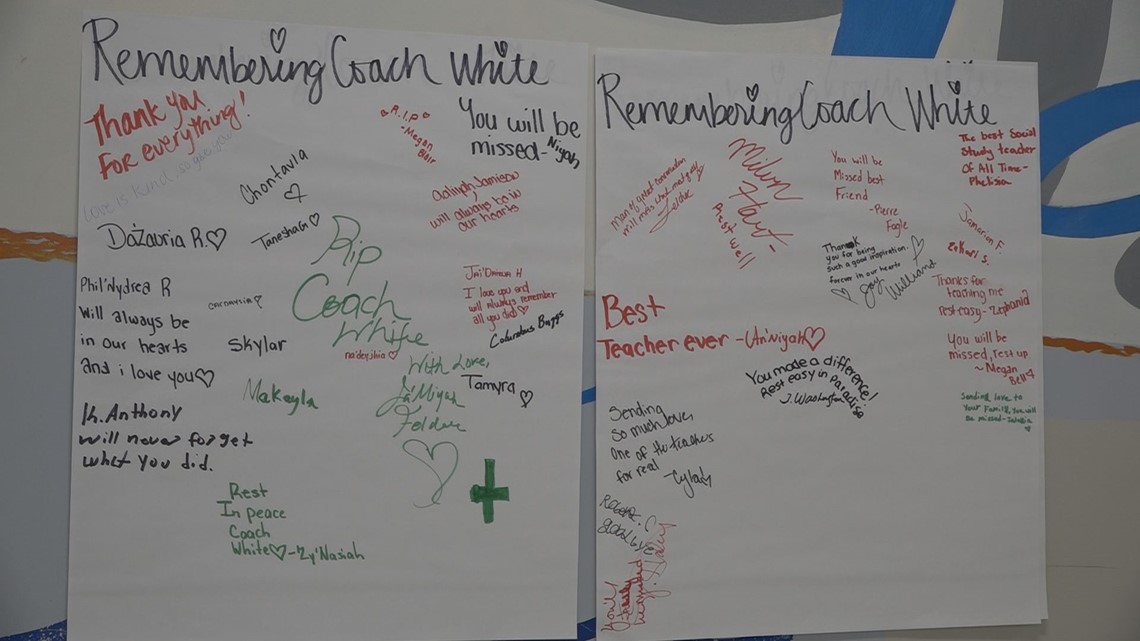 Remembering Coach White
Thank you
For everything!
Love is kind, so give
R.I.P
-Megan
Blair
You will be
missed-Niyah
Chontavia
Aaliyah Jamieson
will always be in
our hearts
DaZauria R.
TaneshaG
Rip
Coach
White
Phil'Nydrea R
Will always be
in our hearts
and i love you
Skylar
I love you and
will always remember
all you did
Columbus Baggs
Makayla
With Love,
Ja'Miyah
Felder
Tamyra
K. Anthony
will never forget
what you did.
Rest
In peace
Coach
White-Zy'Nasiah
Remembering Coach White
Man of great conversation
will miss
Milan
Hart-
Rest well
You will be
Missed best
Friend
-Pierre
Fogle
The best Social
Study teacher
Of All Time-
Phelisia
Jamarion F.
Thank
you for being
such a good inspiration.
forever in our hearts
Jay Williams
Zekari S.
Thanks for
teaching me
rest easy-Zephaniá
Best
Teacher ever -An'niyah
You will be
missed, rest up
~Megan
Bell
You made a difference!
Rest easy in paradise
J. Washington
Sending love to
Your Family, You will
be missed-
Sending
so much love,
One of the teachers
for real
-Cyla